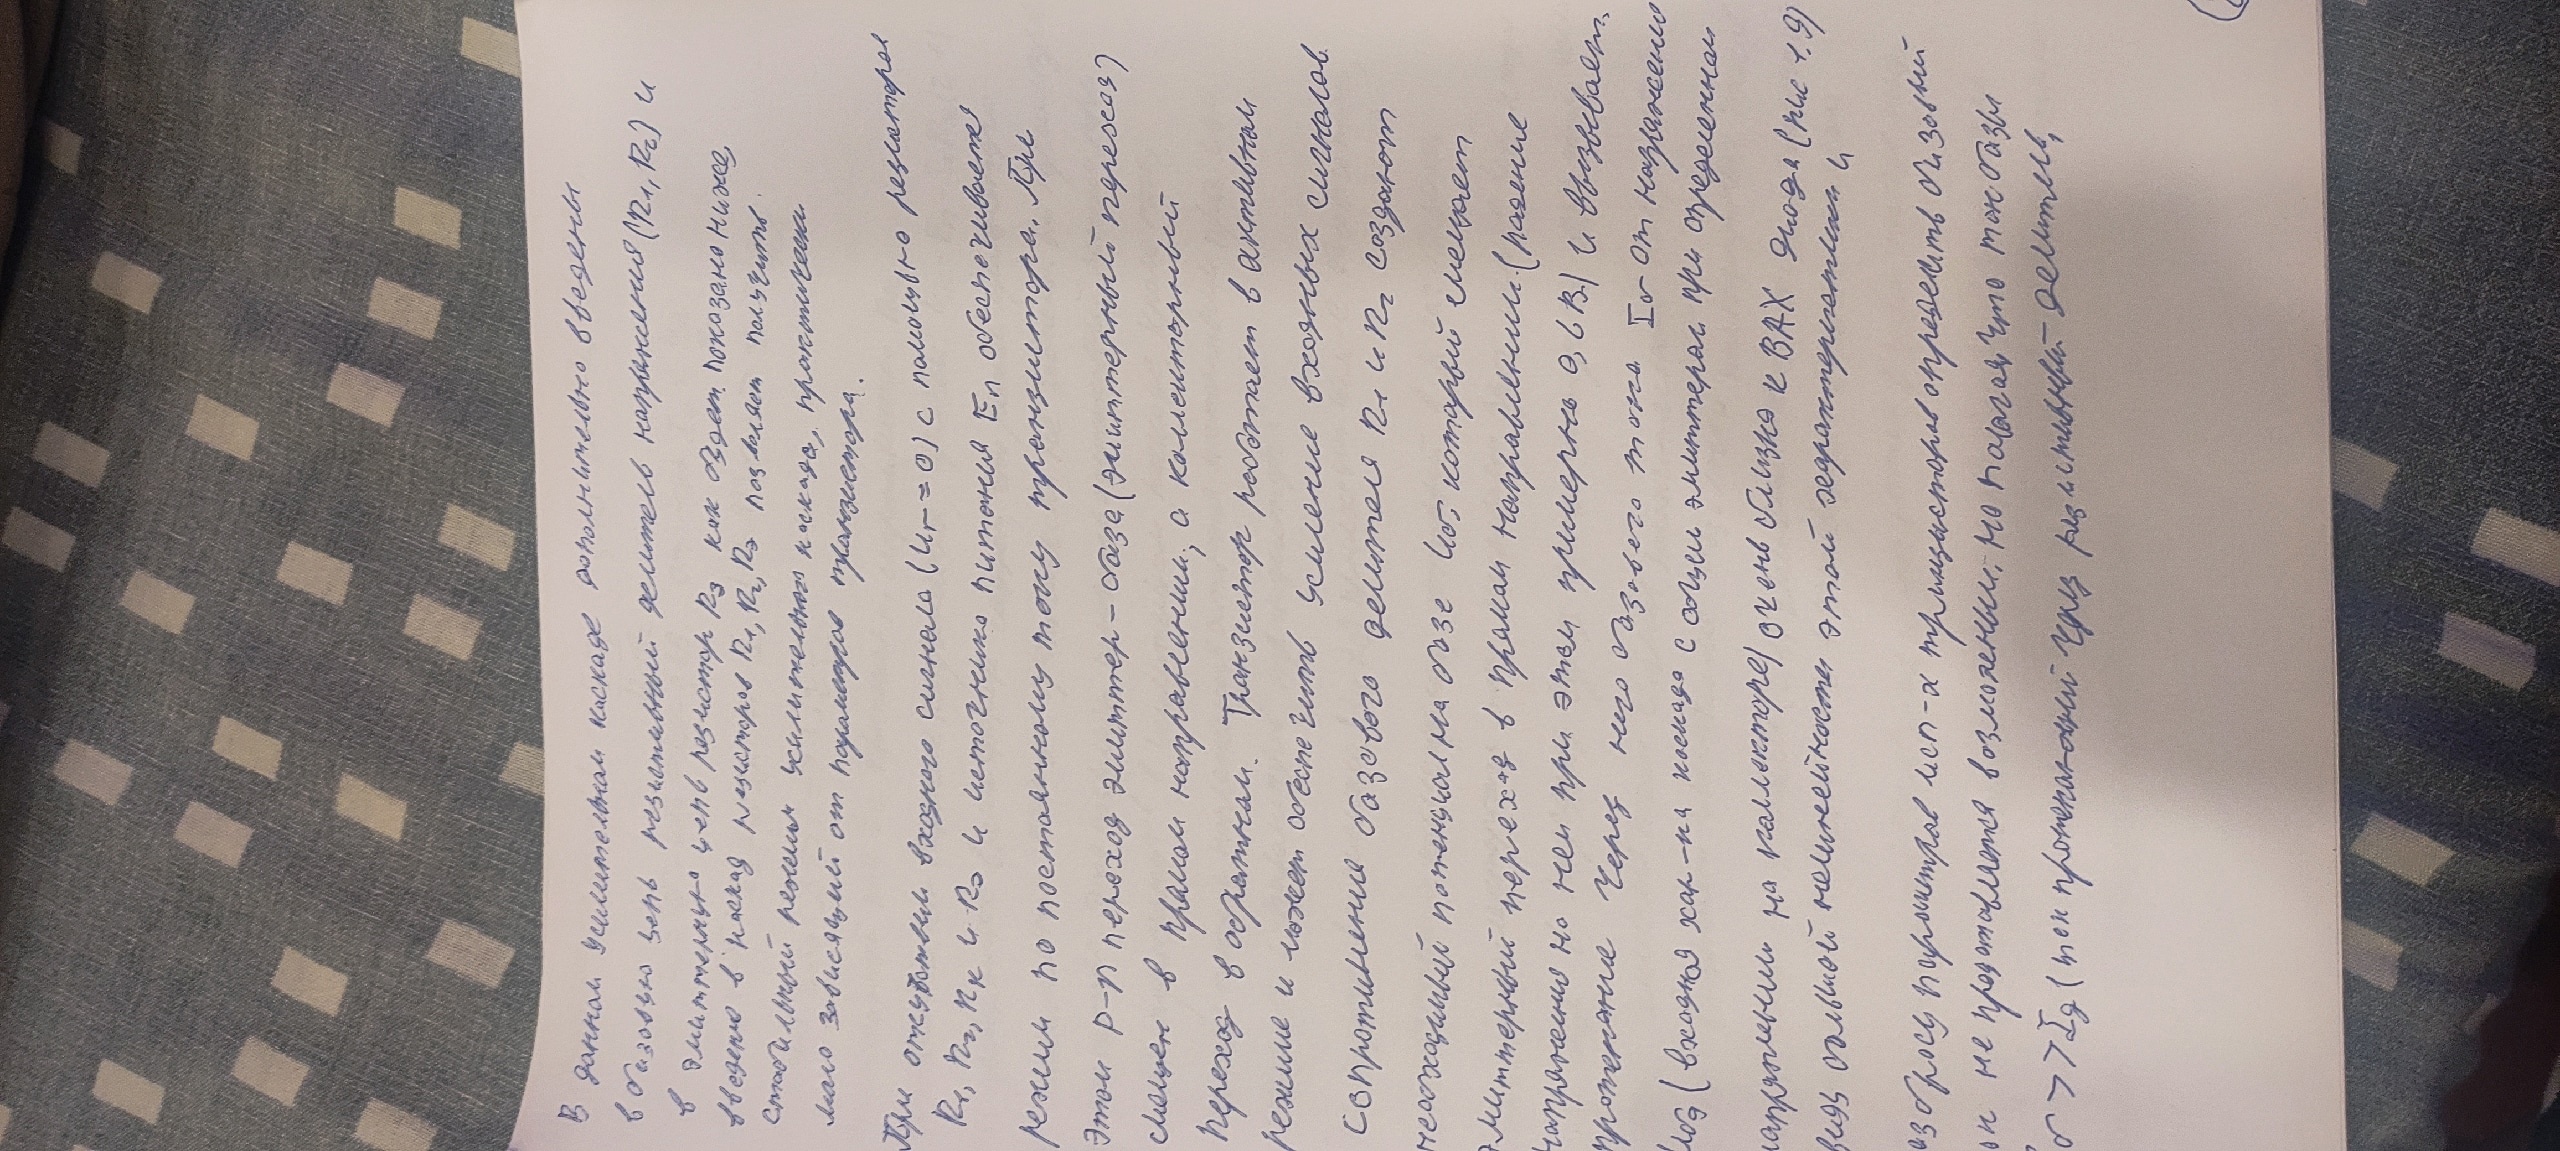 В данном усилительном каскаде дополнительно введены
в базовую цепь резистивный делитель напряжения (R1, R2) и
в эмиттерную цепь резистор Rэ как будет показано ниже,
введение в каскад резисторов R1, R2, Rэ позволяет получить
стабильный режим усилительного каскада, практически
мало зависящий от параметров транзистора.
При отсутствии входного сигнала (Uг=0) с помощью резисторов
R1, R2, Rк и Rэ и источника питания Eп обеспечивается
режим по постоянному току транзистора. При
этом p-n переход эмиттер-база (эмиттерный переход)
смещен в прямом направлении, а коллекторный
переход в обратном. Транзистор работает в активном
режиме и может обеспечить усиление входных сигналов.
Сопротивления базового делителя R1 и R2 создают
необходимый потенциал на базе Uоб который смещает
эмиттерный перех-д в прямом направлении. (падение
напряжению на нем при этом примерно 0,6 В) и вызывает
протекание через него базового тока Iб от напряжения
Uоб (входная хар-ка каскада с общим эмиттером при определенном
напряжении на коллекторе) очень близка к ВАХ диода (рис 1.9)
виду большой нелинейности этой характеристики и
разбросу параметров исп-х транзисторов определить базовый
ок не представляется возможным, но полагая что ток базы
б >> Iд (ток протекающий через резистивный делитель,